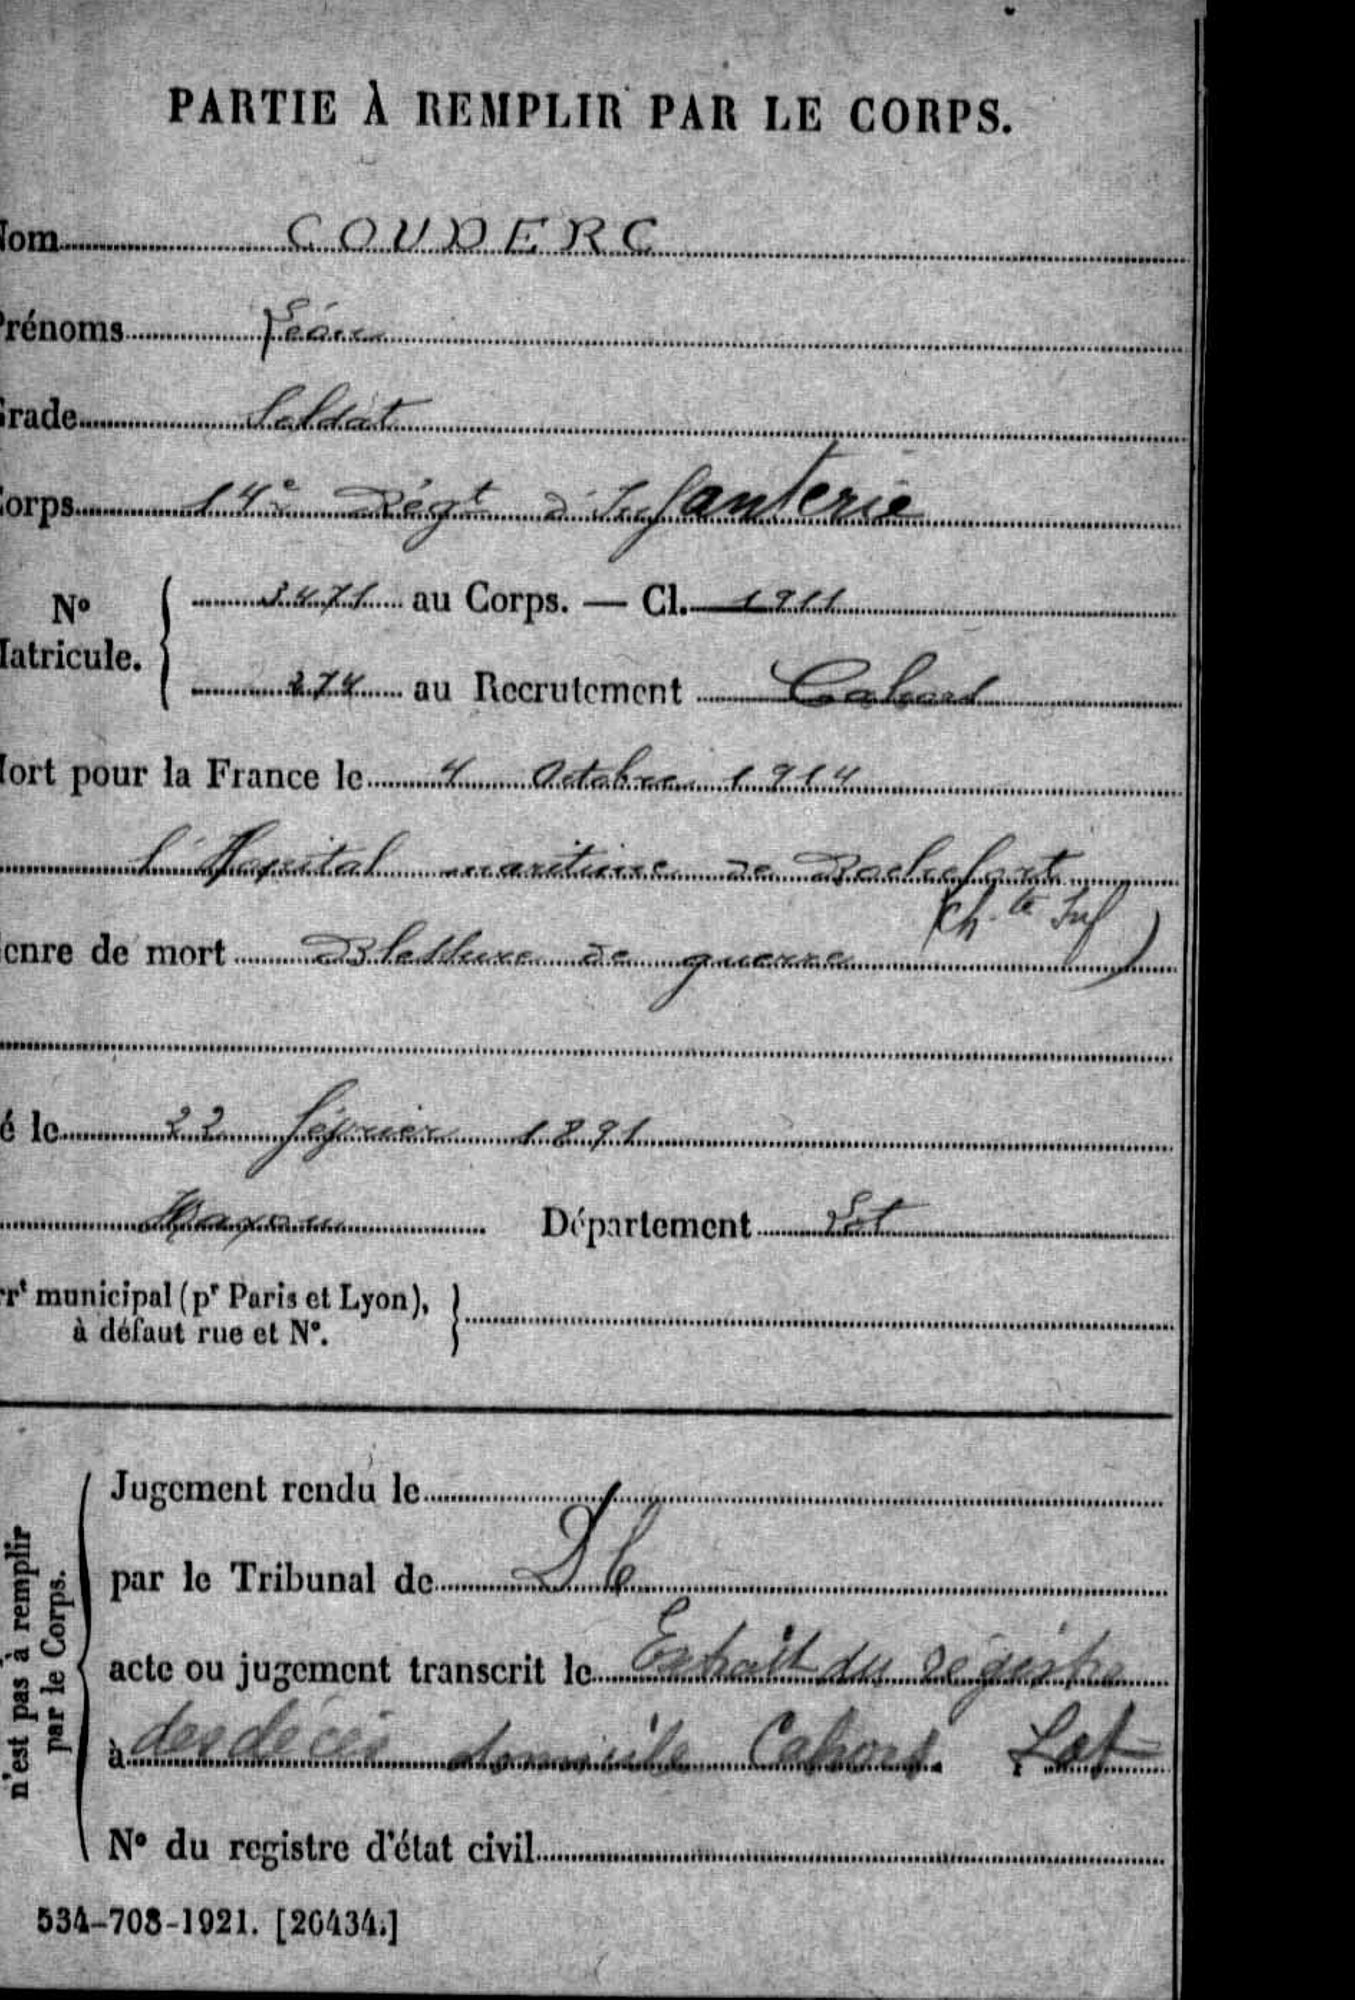 PARTIE À REMPLIR PAR LE CORPS.
Nom COUDERC
Prénoms Léon
Grade Soldat
Corps 14e Régt d'Infanterie
N° Matricule. { 3471 au Corps. — Cl. 1911
274 au Recrutement Cahors
Mort pour la France le 4 Octobre 1914
l'Hopital maritime de Rochefort
(Ch.te Inf)
Genre de mort Blessure de guerre
Né le 22 février 1891
Département Lot
Arrt municipal (pr Paris et Lyon),
à défaut rue et N°.
n'est pas à remplir
par le Corps.
Jugement rendu le
par le Tribunal de
acte ou jugement transcrit le Extrait du régistre
à des décès domicile Cahors. Lot
N° du registre d'état civil
534-708-1921. [26434.]